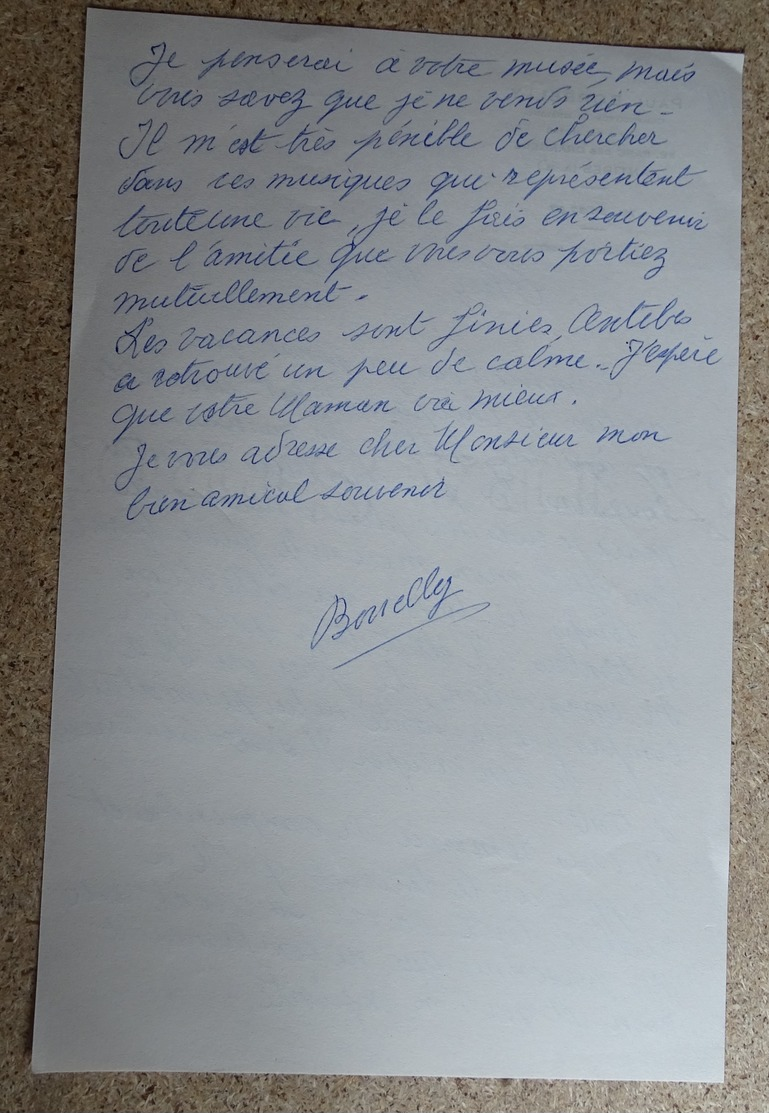 Je penserai à votre musée, mais
vous savez que je ne vends rien -
Il m'est très pénible de chercher
dans ces musiques qui représentent
toute une vie, je le fais en souvenir
de l'amitié que vous vous portiez
mutuellement.
Les vacances sont finies, Antibes
a retrouvé un peu de calme. J'espère
que votre Maman va mieux.
Je vous adresse cher Monsieur mon
bien amical souvenir